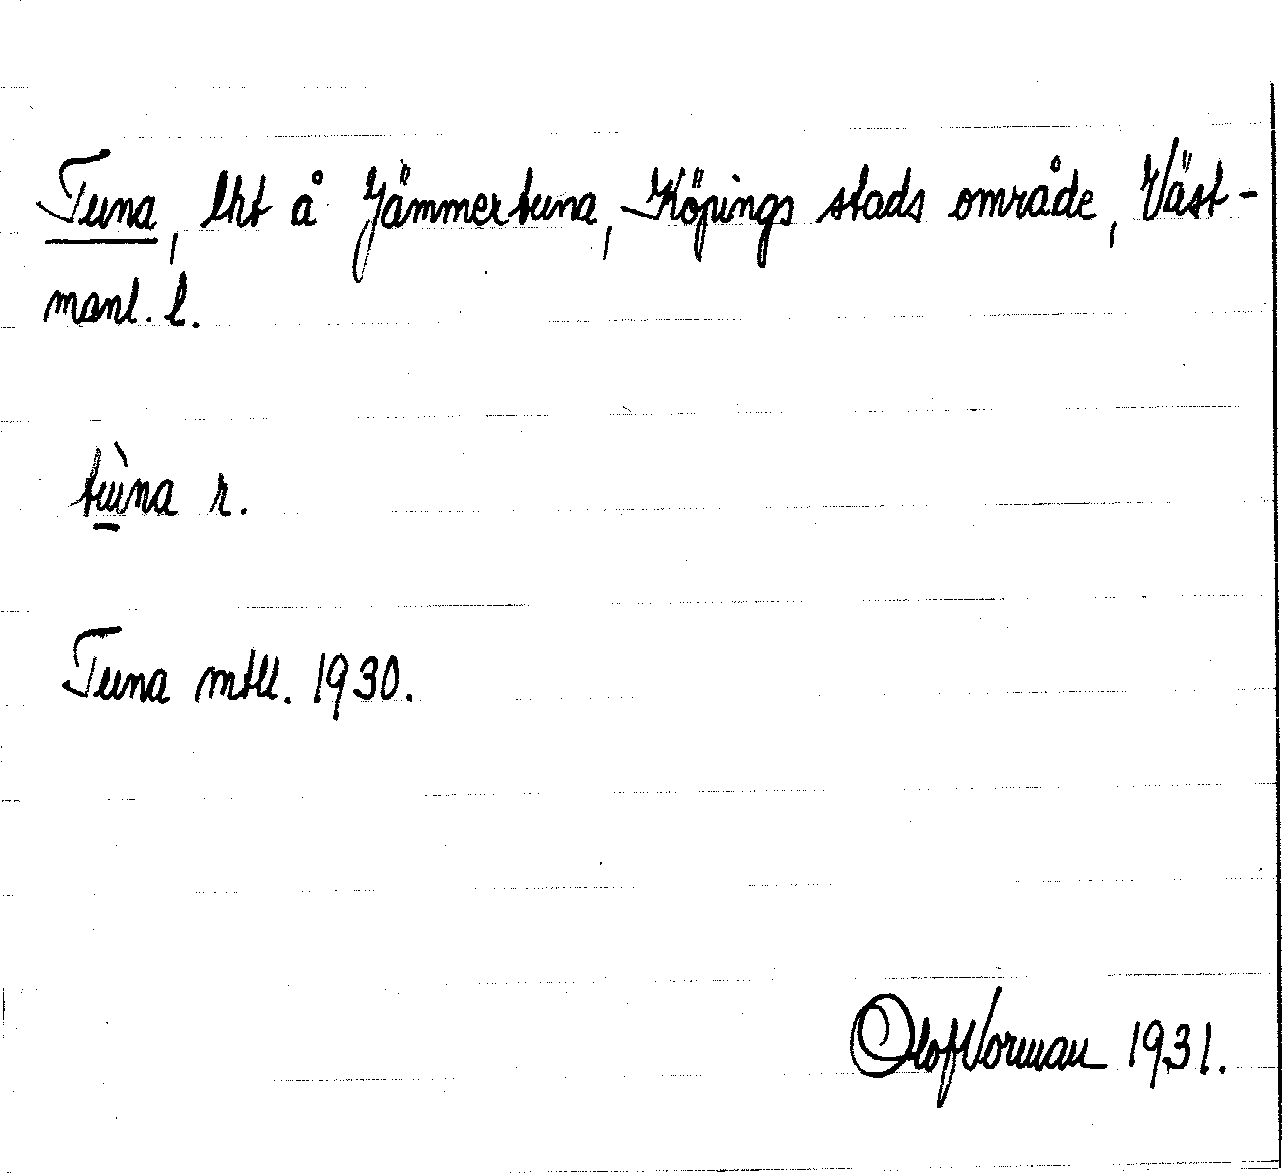 Tuna, lht å Jämmertuna, Köpings stads område, Väst-
manl. l.
tùna r.
Tuna mtll. 1930.
Olof Vorman 1931.